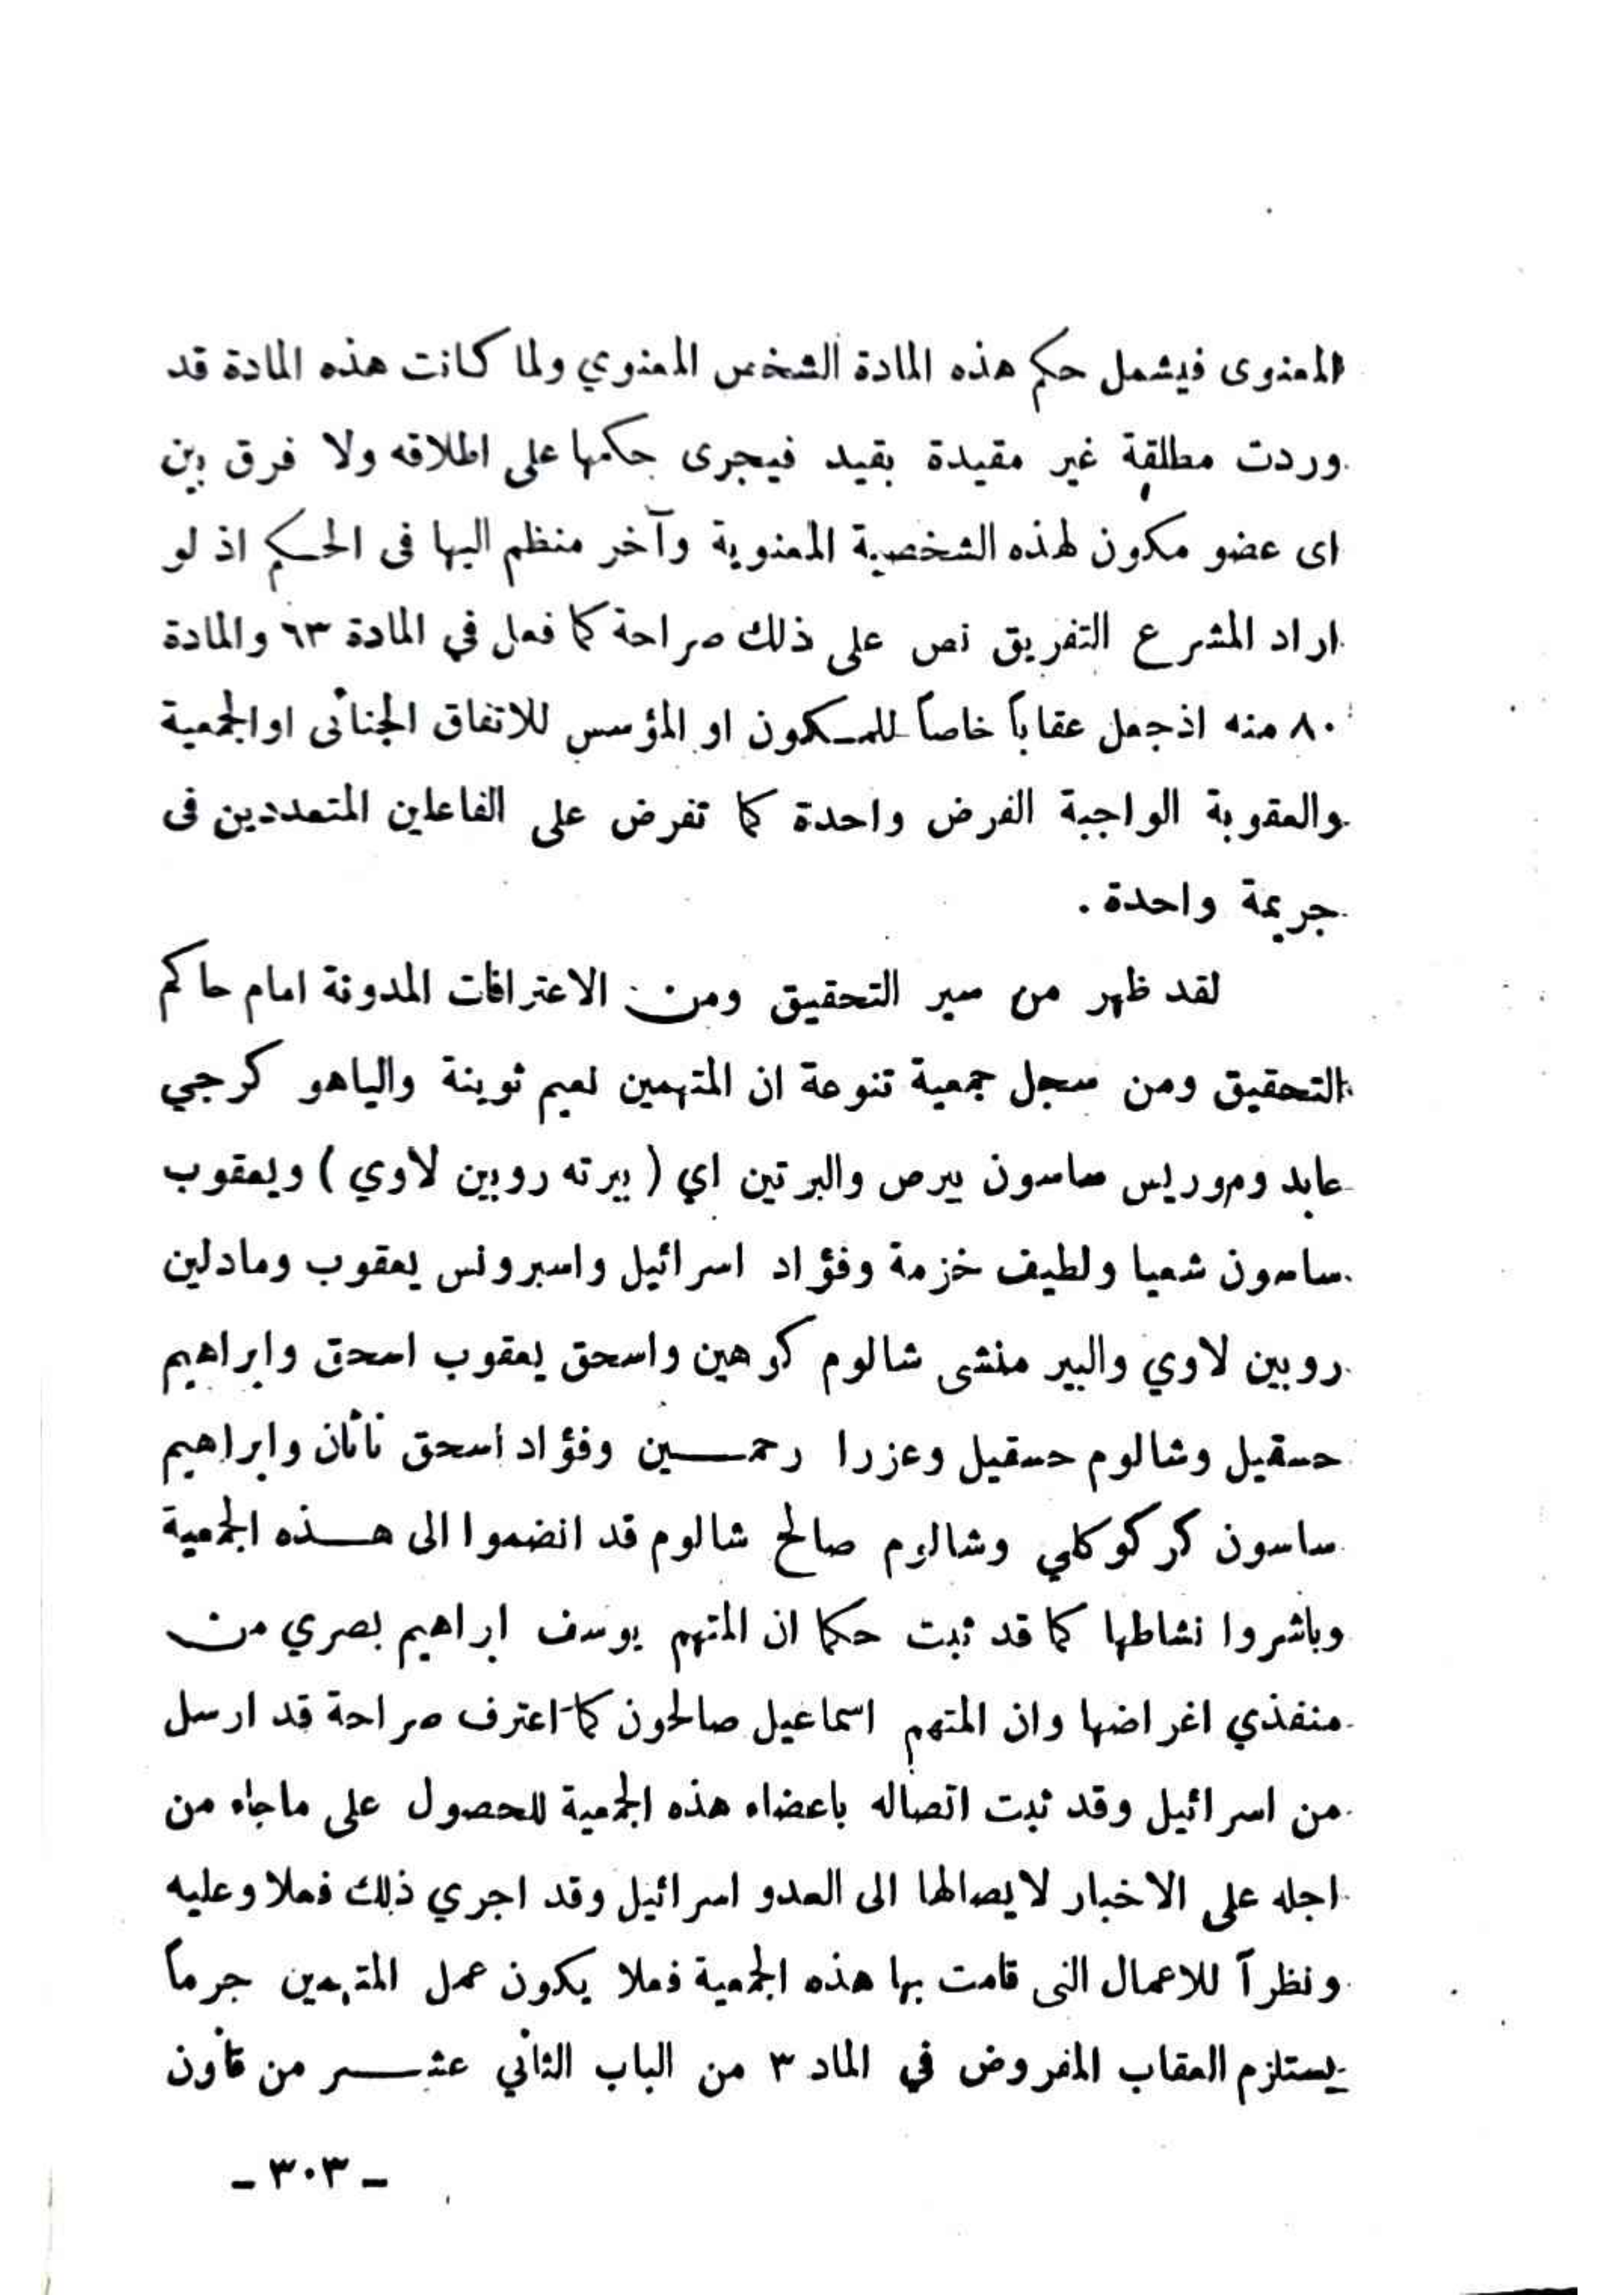 المعنوى فيشمل حكم هذه المادة الشخص المعنوي ولما كانت هذه المادة قد
وردت مطلقة غير مقيدة بقيد فيجرى حكمها على اطلاقه ولا فرق بين
اى عضو مكون لهذه الشخصية المعنوية وآخر منظم اليها فى الحكم اذ لو
اراد المشرع التفريق نص على ذلك صراحة كما فعل في المادة ٦٣ والمادة
٨٠ منه اذ جعل عقاباً خاصاً للمكون او المؤسس للاتفاق الجنائى او الجمعية
والعقوبة الواجبة الفرض واحدة كما تفرض على الفاعلين المتعددين فى
جريمة واحدة .
لقد ظهر من سير التحقيق ومن الاعترافات المدونة امام حاكم
التحقيق ومن سجل جمعية تنوعة ان المتهمين نعيم ثوينة والياهو كرجي
عابد وموريس ساسون بيرص والبرتين اي ( بيرته روبين لاوي ) ويعقوب
ساسون شعيا ولطيف خزمة وفؤاد اسرائيل واسبرونس يعقوب ومادلين
روبين لاوي والبير منشى شالوم كوهين واسحق يعقوب اسحق وابراهيم
حسقيل وشالوم حسقيل وعزرا رحمين وفؤاد اسحق ناثان وابراهيم
ساسون كركوكلي وشالوم صالح شالوم قد انضموا الى هذه الجمعية
وباشروا نشاطها كما قد ثبت حكما ان المتهم يوسف ابراهيم بصري من
منفذي اغراضها وان المتهم اسماعيل صالحون كما اعترف صراحة قد ارسل
من اسرائيل وقد ثبت اتصاله باعضاء هذه الجمعية للحصول على ماجاء من
اجله على الاخبار لايصالها الى العدو اسرائيل وقد اجري ذلك فعلا وعليه
ونظرآ للاعمال التى قامت بها هذه الجمعية فعلا يكون عمل المتهمين جرماً
يستلزم العقاب المفروض في الماد ٣ من الباب الثاني عشر من قانون
- ٣٠٣ -